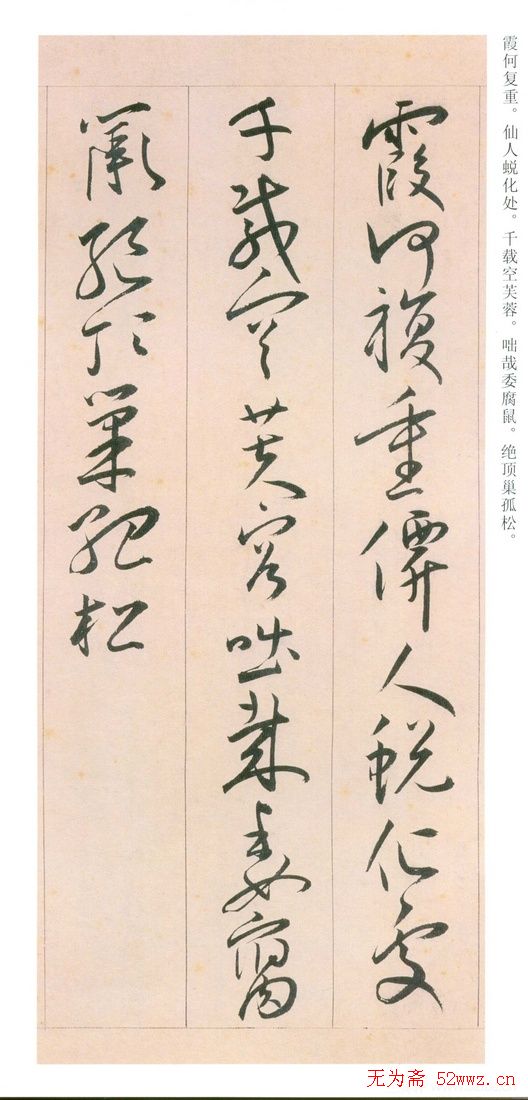 霞何复重。仙人蜕化处。千载空芙蓉。咄哉委腐鼠。绝顶巢孤松。
霞何複重僊人蜕化處
千載空芙容咄哉委腐
鼠絕頂巢孤松
无为斋 52wwz.cn